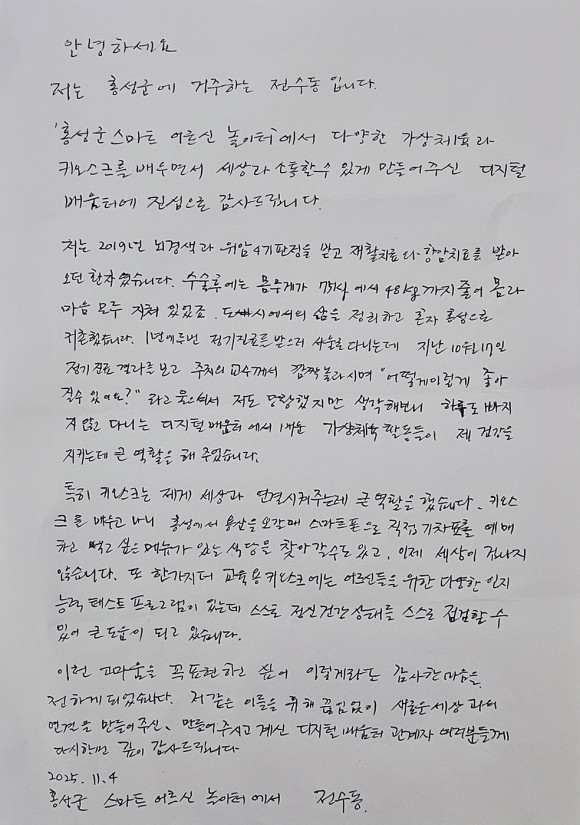 안녕하세요
저는 홍성군에 거주하는 전수동입니다.
'홍성군 스마트 어르신 놀이터'에서 다양한 가상체육과
키오스크를 배우면서 세상과 소통할 수 있게 만들어주신 디지털
배움터에 진심으로 감사드립니다.
저는 2019년 뇌경색과 위암4기판정을 받고 재활치료와 항암치료를 받아
오던 환자였습니다. 수술후에는 몸무게가 75kg에서 48kg까지 줄어 몸과
마음 모두 지쳐 있었죠. 도시에서의 삶을 정리하고 혼자 홍성으로
귀촌했습니다. 1년에 두번 정기진료를 받으러 서울로 다니는데 지난 10월17일
정기진료 결과를 보고 주치의 교수께서 깜짝 놀라시며 "어떻게 이렇게 좋아
질수 있어요?" 라고 물으셔서 저도 당황했지만 생각해보니 하루도 빠지
지 않고 다니는 디지털배움터에서 배운 가상체육 활동들이 제 건강을
지키는데 큰 역할을 해 주었습니다.
특히 키오스크는 제게 세상과 연결시켜주는데 큰 역할을 했습니다. 키오스
크를 배우고 나니 홍성에서 용산을 오갈때 스마트폰으로 직접 기차표를 예매
하고 먹고 싶은 메뉴가 있는 식당을 찾아갈수도 있고, 이제 세상이 겁나지
않습니다. 또 한가지더 교육용키오스크에는 어르신들을 위한 다양한 인지
능력 테스트 프로그램이 있는데 스스로 정신건강 상태를 스스로 점검할 수
있어 큰 도움이 되고 있습니다.
이런 고마움을 꼭 표현하고 싶어 이렇게라도 감사한 마음을
전하게 되었습니다. 저같은 이들을 위해 끊임없이 새로운 세상과의
연결을 만들어주신, 만들어주시고 계신 디지털배움터 관계자 여러분들께
다시한번 깊이 감사드립니다
2025. 11. 4
홍성군 스마트 어르신 놀이터에서 전수동.